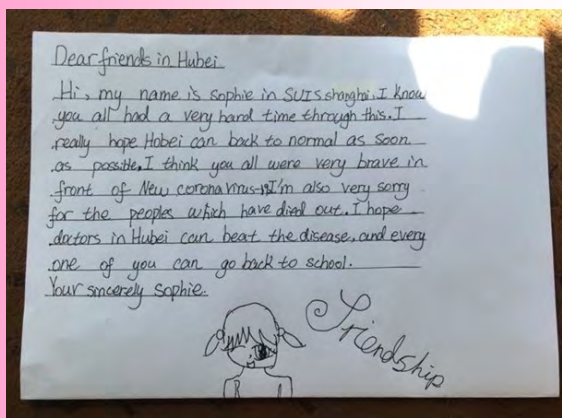 Dear friends in Hubei
Hi, my name is sophie in SUIS shanghai, I know
you all had a very hard time through this. I
really hope Hobei can back to normal as soon
as possible. I think you all were very brave in
front of New coronavirus I'm also very sorry
for the peoples which have died out. I hope
doctors in Hubei can beat the disease, and every
one of you can go back to school.
Your sincerely Sophie.
Friendship